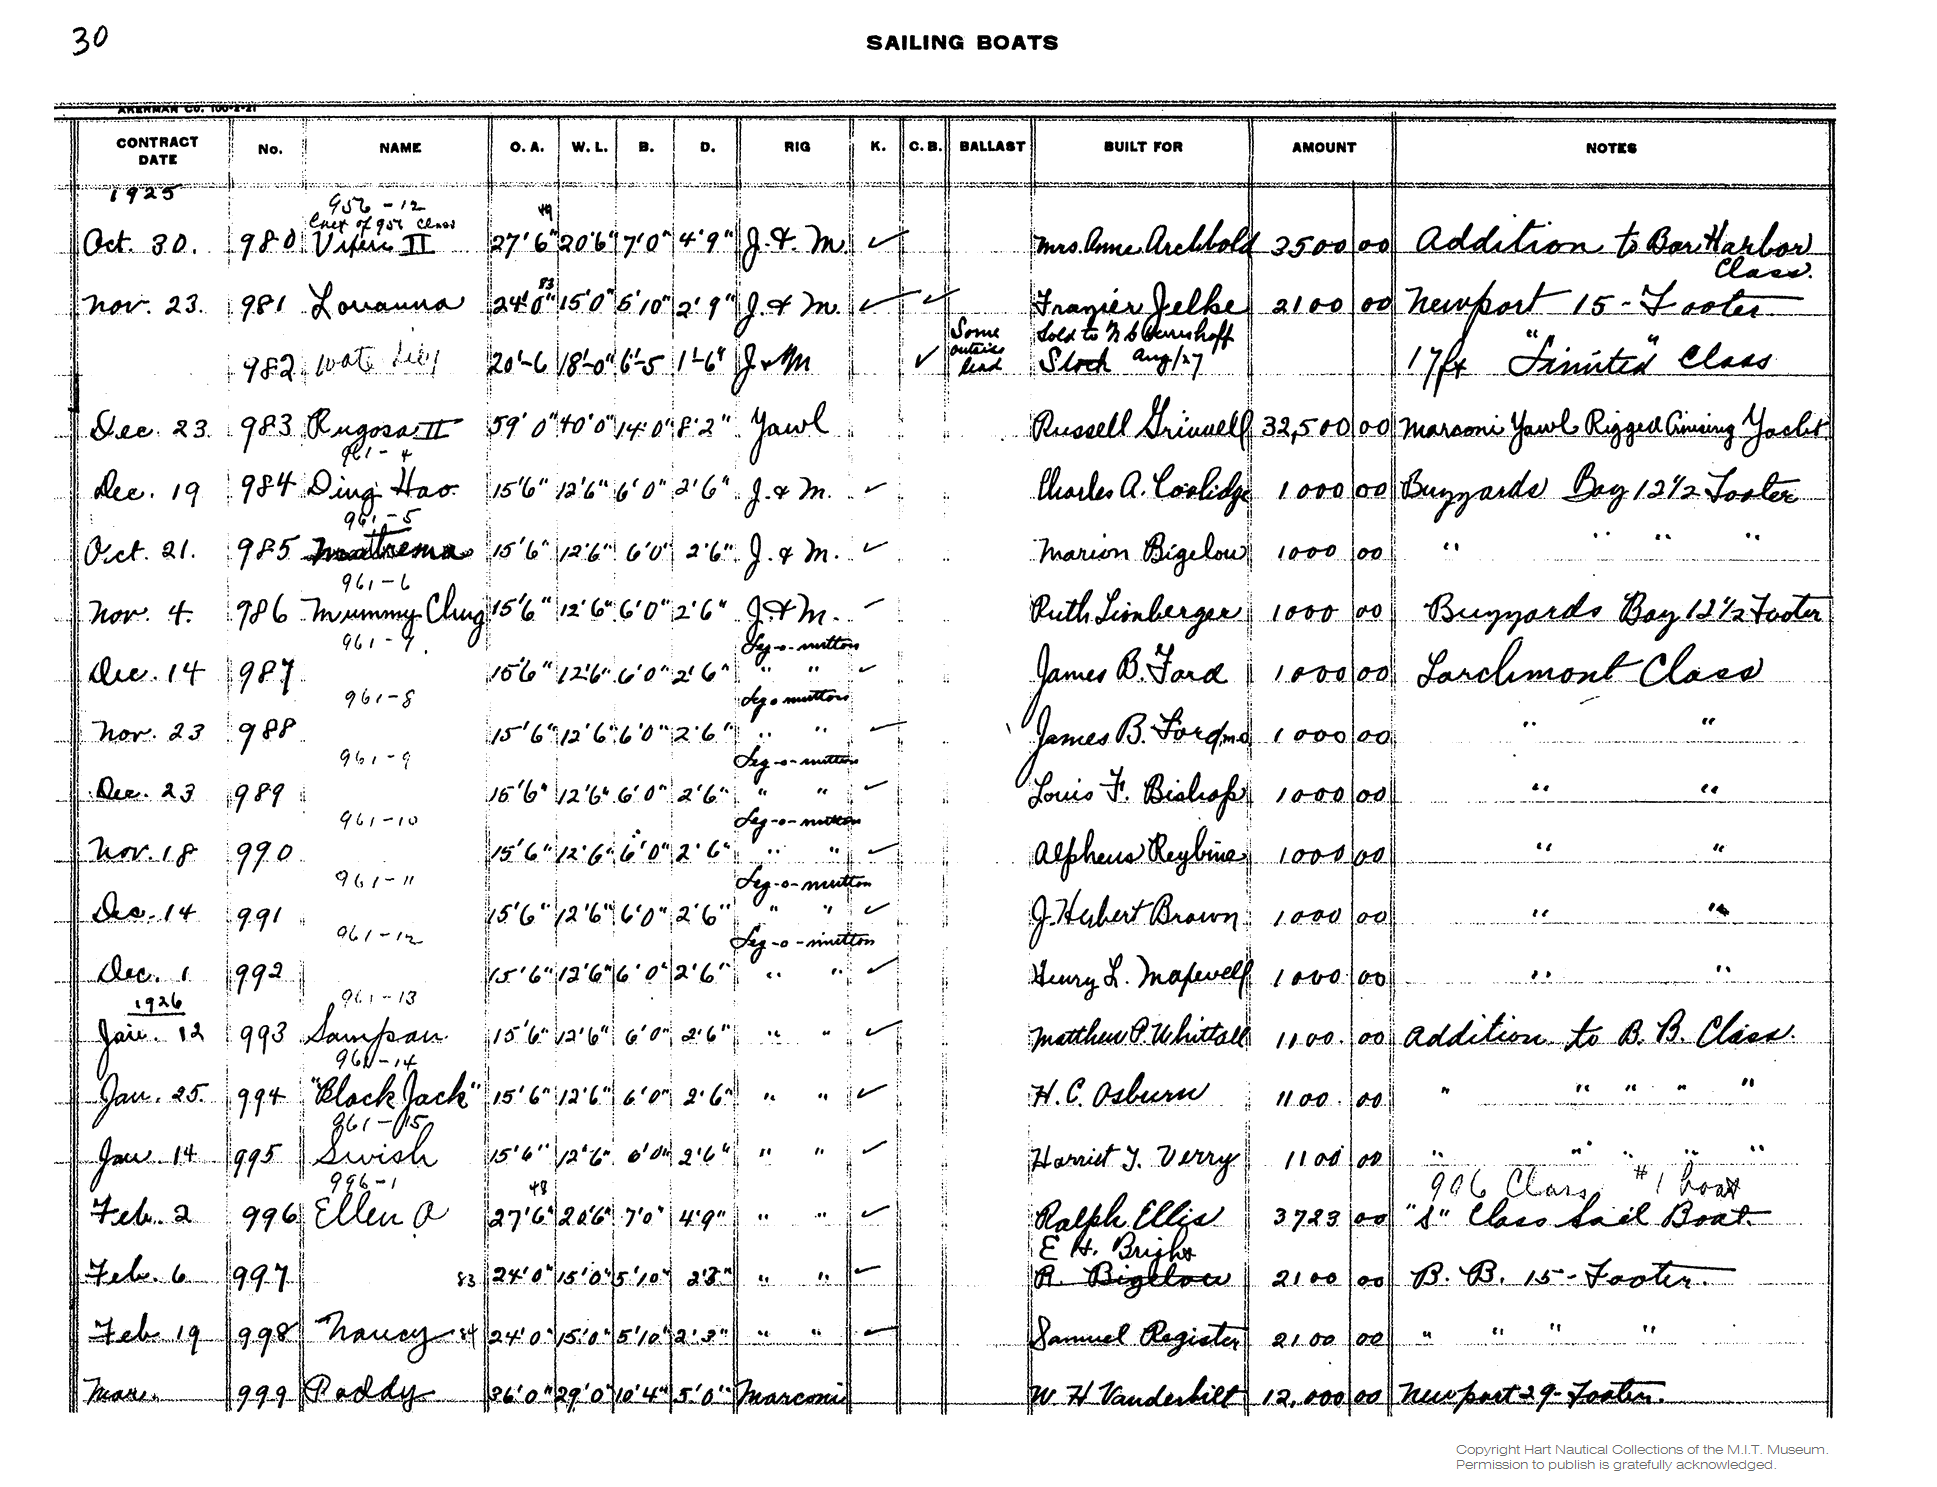 30
SAILING BOATS
AKERMAN CO. 100-2-21
CONTRACT DATE No. NAME O. A. W. L. B. D. RIG K. C. B. BALLAST BUILT FOR AMOUNT NOTES
1925
956-12
49
Oct. 30. 980 II 27'6" 20'6" 7'0" 4'9" J. & M. ✓ Mrs. Anne Archbold 3500 00 Addition to Bar Harbor
Class.
83
Nov. 23. 981 Lovanna 24'0" 15'0" 5'10" 2'9" J. & M. ✓ ✓ Frazier Jelke 2100 00 Newport 15-Footer
Some outside lead
Sold to N G Herreshoff
982 20'-6 18'-0" 6'-5 1'-6" J & M ✓ Stock Aug/27 17ft "Limited" Class
Dec. 23 983 Rugosa II 59'0" 40'0" 14'0" 8'2" Yawl Russell Grinnell 32,500 00 Marconi Yawl Rigged Cruising Yacht
961-4
Dec. 19 984 Ding Hao 15'6" 12'6" 6'0" 2'6" J. & M. ✓ Charles A. Coolidge 1000 00 Buzzards Bay 12½ Footer
961-5
Oct. 21. 985 15'6" 12'6" 6'0" 2'6" J. & M. ✓ Marion Bigelow 1000 00 " " " "
961-6
Nov. 4. 986 Mummy Chug 15'6" 12'6" 6'0" 2'6" J. & M. ✓ Ruth Lionberger 1000 00 Buzzards Bay 12½ Footer
961-7. Leg-o-mutton
Dec. 14 987 15'6" 12'6" 6'0" 2'6" " " ✓ James B. Ford 1000 00 Larchmont Class
961-8 Leg o mutton
Nov. 23 988 15'6" 12'6" 6'0" 2'6" " " ✓ James B. Ford 1000 00 " "
961-9 Leg-o-mutton
Dec. 23 989 15'6" 12'6" 6'0" 2'6" " " ✓ Louis F. Bishop 1000 00 " "
961-10 Leg-o-mutton
Nov. 18 990 15'6" 12'6" 6'0" 2'6" " " ✓ Alpheus 1000 00 " "
961-11 Leg-o-mutton
Dec. 14 991 15'6" 12'6" 6'0" 2'6" " " ✓ J. Hubert Brown 1000 00 " "
961-12 Leg-o-mutton
Dec. 1 992 15'6" 12'6" 6'0" 2'6" " " ✓ Henry L. 1000 00 " "
1926
961-13
Jan. 12 993 Sampan 15'6" 12'6" 6'0" 2'6" " " ✓ Matthew P. Whittall 1100. 00 Addition to B. B. Class.
961-14
Jan. 25. 994 "Black Jack" 15'6" 12'6" 6'0" 2'6" " " ✓ H. C. Osburn 1100. 00 " " " " "
961-15
Jan. 14 995 Swish 15'6" 12'6" 6'0" 2'6" " " ✓ Harriet T. Verry 1100 00 " " " " "
996-1 48 Class #1 boat
Feb. 2 996 Ellen A 27'6" 20'6" 7'0" 4'9" " " ✓ Ralph Ellis 3723 00 "S" Class Sail Boat
E H. Bright
Feb. 6 997 83 24'0" 15'0" 5'10" 2'3" " " ✓ R. Bigelow 2100 00 B. B. 15-Footer.
Feb 19 998 Nancy 84 24'0" 15'0" 5'10" 2'3" " " ✓ Samuel Register 2100 00 " " " "
Mar. 999 Paddy 36'0" 29'0" 10'4" 5'0" Marconi W. H Vanderbilt 12,000 00 Newport 29-Footer.
Copyright Hart Nautical Collections of the M.I.T. Museum.
Permission to publish is gratefully acknowledged.